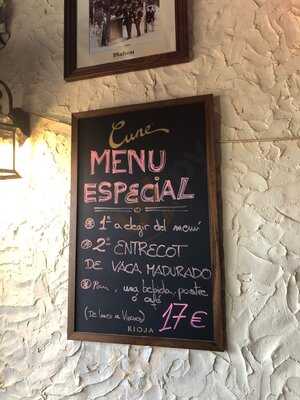 Cune
MENU
ESPECIAL
1º a elegir del menú
2º ENTRECOT
DE VACA MADURADO
Pan, una bebida, postre
ó café
(De lunes a Viernes) 17€
RIOJA